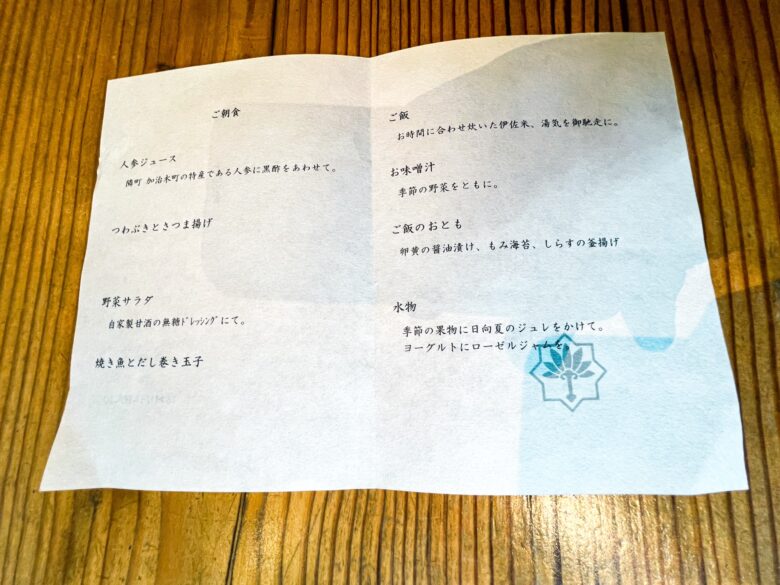 ご朝食
人参ジュース
隣町 加治木町の特産である人参に黒酢をあわせて。
つわぶきとさつま揚げ
野菜サラダ
自家製甘酒の無糖ﾄﾞﾚｯｼﾝｸﾞにて。
焼き魚とだし巻き玉子
ご飯
お時間に合わせ炊いた伊佐米、湯気を御馳走に。
お味噌汁
季節の野菜をともに。
ご飯のおとも
卵黄の醤油漬け、もみ海苔、しらすの釜揚げ
水物
季節の果物に日向夏のジュレをかけて。
ヨーグルトにローゼルジャムを。